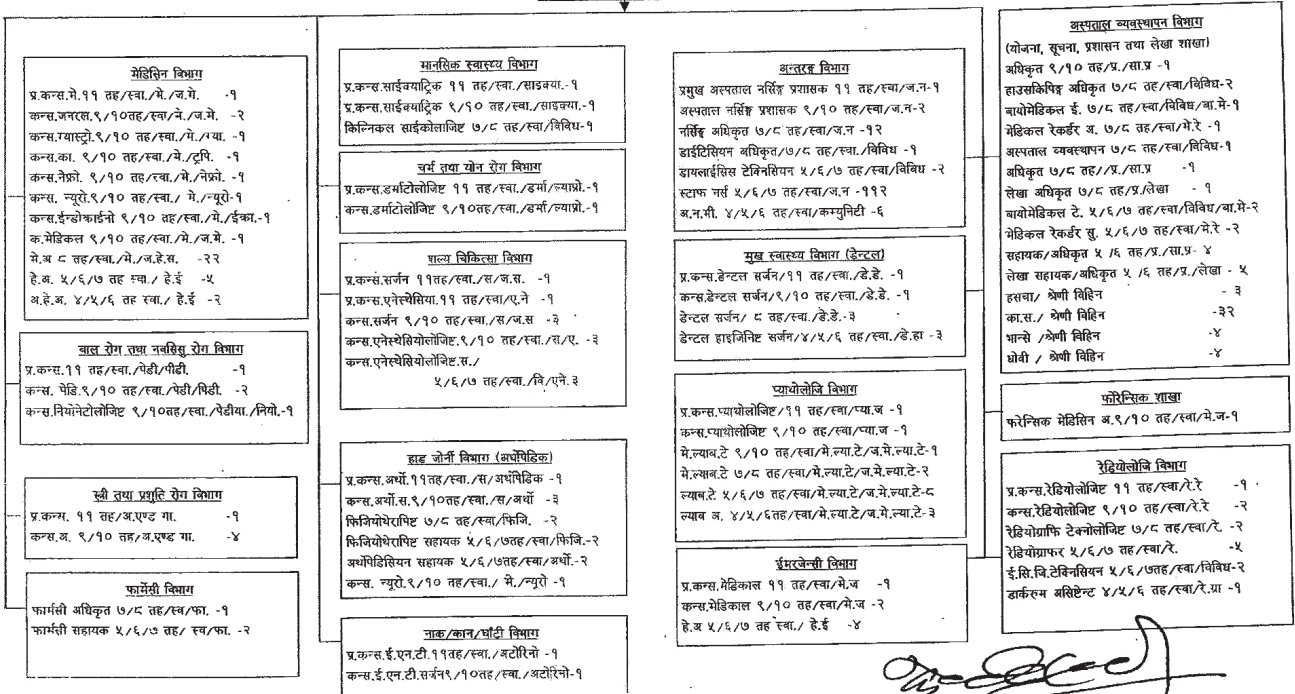 मेडिसिन विभाग
प्र.कन्स.मे.११ तह/स्वा./मे./ज.मे. -१
कन्स.जनरल.९/१०तह/स्वा/मे./ज.मे. -२
कन्स.ग्यास्ट्रो.९/१० तह/स्वा./मे./ग्या. -१
कन्स.का. ९/१० तह/स्वा./मे./ट्रपि. -१
कन्स.नेफ्रो. ९/१० तह/स्वा./मे./नेफ्रो. -१
कन्स. न्यूरो.९/१० तह/स्वा./ मे./न्यूरो-१
कन्स.ईन्डोक्राईनो ९/१० तह/स्वा./मे./ईक्रा.-१
क.मेडिकल ९/१० तह/स्वा./मे./ज.मे. -१
मे.अ ८ तह/स्वा./मे./ज.हे.स. -२२
हे.अ. ५/६/७ तह स्वा./ हे.ई -५
अ.हे.अ. ४/५/६ तह स्वा./ हे.ई -२
बाल रोग तथा नवसिसु रोग विभाग
प्र.कन्स.११ तह/स्वा./पेडी/पीडी. -१
कन्स. पेडि.९/१० तह/स्वा./पेडी/पिडी. -२
कन्स.नियोनेटोलोजिष्ट ९/१०तह/स्वा./पेडीया./नियो.-१
स्त्री तथा प्रशुति रोग विभाग
प्र.कन्स. ११ तह/अ.एण्ड गा. -१
कन्स.अ. ९/१० तह/अ.एण्ड गा. -४
फार्मेसी विभाग
फार्मसी अधिकृत ७/८ तह/स्व/फा. -१
फार्मसी सहायक ५/६/७ तह/ स्व/फा. -२
मानसिक स्वास्थ्य विभाग
प्र.कन्स.साईक्याट्रिक ११ तह/स्वा./साइक्या.-१
प्र.कन्स.साईक्याट्रिक ९/१० तह/स्वा./साइक्या.-१
किल्निकल साईकोलाजिष्ट ७/८ तह/स्वा/विविध-१
चर्म तथा योन रोग विभाग
प्र.कन्स.डर्माटोलोजिष्ट ११ तह/स्वा./डर्मा/ल्याप्रो.-१
कन्स.डर्माटोलोजिष्ट ९/१०तह/स्वा./डर्मा/ल्याप्रो.-१
शल्य चिकित्सा विभाग
प्र.कन्स.सर्जन ११तह/स्वा./स/ज.स. -१
प्र.कन्स.एनेस्थेसिया.११ तह/स्वा/ए.ने -१
कन्स.सर्जन ९/१० तह/स्वा./स/ज.स -३
कन्स.एनेस्थेसियोलोजिष्ट.९/१० तह/स्वा./स/ए. -३
कन्स.एनेस्थेसियोलोजिष्ट.स./
५/६/७ तह/स्वा./वि/एने.३
हाड जोर्नी विभाग (अर्थोपेडिक)
प्र.कन्स.अर्थो.११तह/स्वा./स/अर्थोपेडिक -१
कन्स.अर्थो.स.९/१०तह/स्वा./स/अर्थो -३
फिजियोथेरापिष्ट ७/८ तह/स्वा/फिजि. -२
फिजियोथेरापिष्ट सहायक ५/६/७तह/स्वा/फिजि.-२
अर्थोपेडिसियन सहायक ५/६/७तह/स्वा/अर्थो.-२
कन्स. न्यूरो.९/१० तह/स्वा./ मे./न्यूरो -१
नाक/कान/घाँटी विभाग
प्र.कन्स.ई.एन.टी.११तह/स्वा./अटोरिनो -१
कन्स.ई.एन.टी.सर्जन९/१०तह/स्वा./अटोरिनो-१
अन्तरङ्ग विभाग
प्रमुख अस्पताल नर्सिङ्ग प्रशासक ११ तह/स्वा/ज.न-१
अस्पताल नर्सिङ्ग प्रशासक ९/१० तह/स्वा/ज.न-२
नर्सिङ्ग अधिकृत ७/८ तह/स्वा/ज.न -१२
डाईटिसियन अधिकृत/७/८ तह/स्वा./विविध -१
डायलाईसिस टेक्निसियन ५/६/७ तह/स्वा/विविध -२
स्टाफ नर्स ५/६/७ तह/स्वा/ज.न -११२
अ.न.मी. ४/५/६ तह/स्वा/कम्युनिटी -६
मुख स्वास्थ्य विभाग (डेन्टल)
प्र.कन्स.डेन्टल सर्जन/११ तह/स्वा./डे.डे. -१
कन्स.डेन्टल सर्जन/९/१० तह/स्वा./डे.डे. -१
डेन्टल सर्जन/ ८ तह/स्वा./डे.डे.-३
डेन्टल हाइजिनिष्ट सर्जन/४/५/६ तह/स्वा./डे.हा -३
प्याथोलोजि विभाग
प्र.कन्स.प्याथोलोजिष्ट/११ तह/स्वा/प्या.ज -१
कन्स.प्याथोलोजिष्ट ९/१० तह/स्वा/प्या.ज -१
मे.ल्याब.टे ९/१० तह/स्वा/मे.ल्या.टे/ज.मे.ल्या.टे-१
मे.ल्याब.टे ७/८ तह/स्वा/मे.ल्या.टे/ज.मे.ल्या.टे-२
ल्याब.टे ५/६/७ तह/स्वा/मे.ल्या.टे/ज.मे.ल्या.टे-८
ल्याब अ. ४/५/६तह/स्वा/मे.ल्या.टे/ज.मे.ल्या.टे-३
ईमरजेन्सी विभाग
प्र.कन्स.मेडिकाल ११ तह/स्वा/मे.ज -१
कन्स.मेडिकाल ९/१० तह/स्वा/मे.ज -२
हे.अ ५/६/७ तह स्वा./ हे.ई -४
अस्पताल व्यवस्थापन विभाग
(योजना, सूचना, प्रशासन तथा लेखा शाखा)
अधिकृत ९/१० तह/प्र./सा.प्र -१
हाउसकिपिङ्ग अधिकृत ७/८ तह/स्वा/विविध-२
बायोमेडिकल ई. ७/८ तह/स्वा/विविध/बा.मे-१
मेडिकल रेकर्डर अ. ७/८ तह/स्वा/मे.रे -१
अस्पताल व्यवस्थापन ७/८ तह/स्वा/विविध-१
अधिकृत ७/८ तह//प्र./सा.प्र -१
लेखा अधिकृत ७/८ तह/प्र./लेखा - १
बायोमेडिकल टे. ५/६/७ तह/स्वा/विविध/बा.मे-२
मेडिकल रेकर्डर सु. ५/६/७ तह/स्वा/मे.रे -२
सहायक/अधिकृत ५ /६ तह/प्र./सा.प्र- ४
लेखा सहायक/अधिकृत ५ /६ तह/प्र./लेखा - ५
हसचा/ श्रेणी विहिन - ३
का.स./ श्रेणी विहिन -३२
भान्से /श्रेणी विहिन -४
धोवी / श्रेणी विहिन -४
फोरेन्सिक शाखा
फरेन्सिक मेडिसिन अ.९/१० तह/स्वा/मे.ज-१
रेडियोलोजि विभाग
प्र.कन्स.रेडियोलोजिष्ट ११ तह/स्वा/रे.रे -१
कन्स.रेडियोलोजिष्ट ९/१० तह/स्वा/रे.रे -२
रेडियोग्राफि टेक्नोलोजिष्ट ७/८ तह/स्वा/रे. -२
रेडियोग्राफर ५/६/७ तह/स्वा/रे. -५
ई.सि.जि.टेक्निसियन ५/६/७तह/स्वा/विविध-२
डार्करुम असिष्टेन्ट ४/५/६ तह/स्वा/रे.ग्रा -१